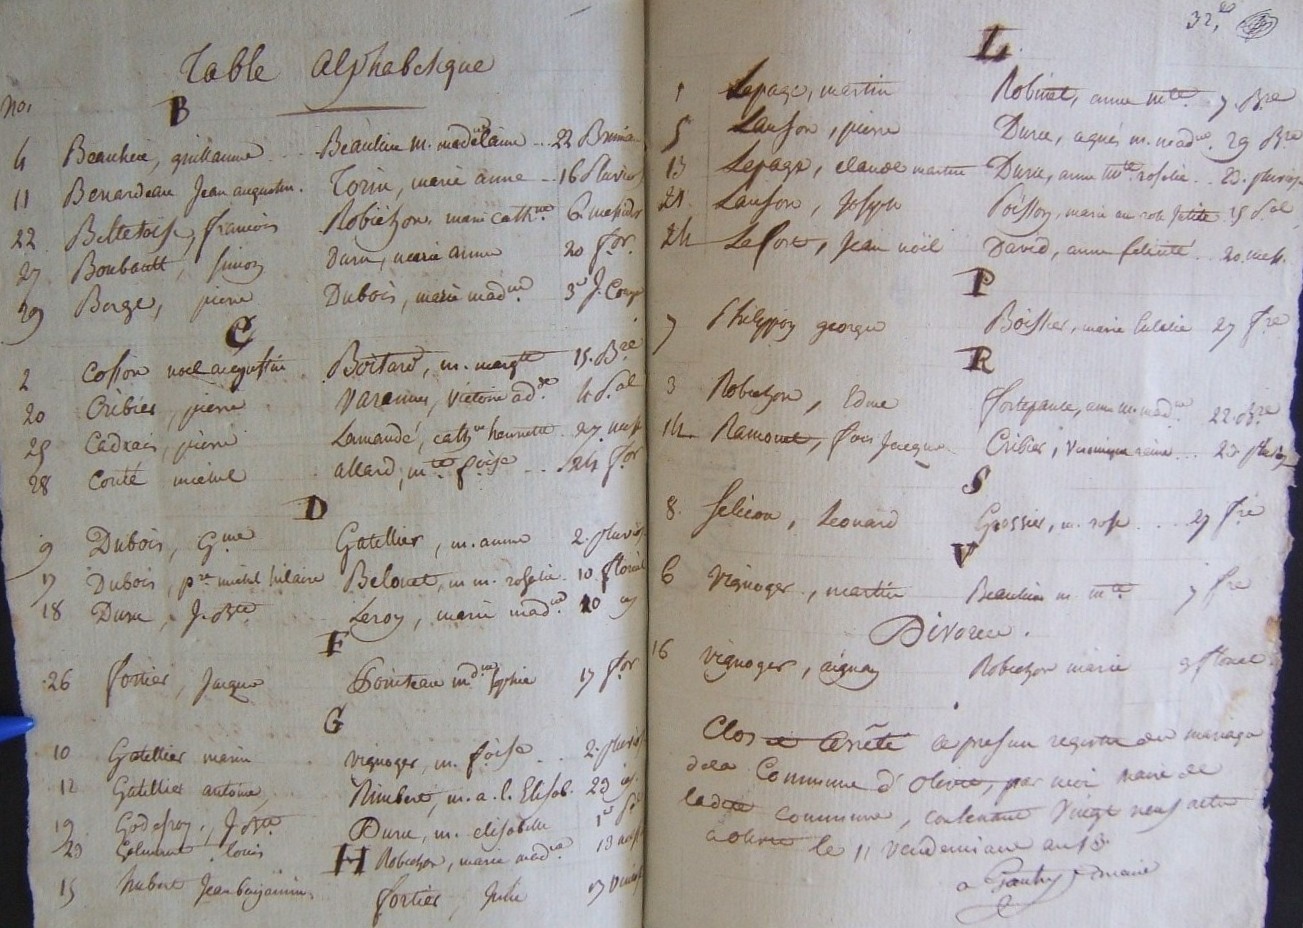 Table alphabetique
Nos
B
4 Beaulieu, guillaume Beaulieu m. madelaine 22 Brum
11 Benardeau Jean augustin. Torin, marie anne 16 Pluvios
22 françois Robichon, marie cath.ne 6 messidor
27 Boubault, simon Duru, marie anne 20 f.or
29 Berge, pierre Dubois, marie mad.ne 3e J. Comp
C
2 Cosson noel augustin Boitard, m. margte 15. B.re
20 Cribier, pierre Varennes, victoire ad.de 4
25 pierre Lamaudé, cath.ne henriette 27 mess
28 Conté michel allard, m.te f.oise 24 f.or
D
9 Dubois, G.me Gatellier, m. anne 2. pluvios
17 Dubois, p.re michel hilaire Belouet, m m. rosalie 10 floreal
18 Duru, J. B.te Leroy, marie mad.ne 20
F
26 fortier, Jacque m.d.ne sophie 17 f.or
G
10 Gatellier marin vignoger, m. f.oise 2. pluvios
12 Gatellier antoine, Rimbert, m. a. l. Elisab. 23
19 Godefroy, J. B.te Duru, m. elisabeth 1er
23 louis Robichon, marie mad.ne 13 mess
H
15 hubert Jean benjamin fortier, Julie 17
32,
L
1 Lepage, martin Robinet, anne m.te 7. B.re
5 Lanson, pierre Duru, agnés m. mad.ne 29 B.re
13 Lepage, claude martin Duru, anne m.te rosalie 23. pluvios
21 Lanson, Joseph Poisson, marie 15
24 Lefort, Jean noël David, anne felicité 20. mess.
P
7 Philippon george Boissier, marie Eulalie 27 f.re
R
3 Robichon, Edme anne m. mad.ne 22. b.re
14 Ramonet, f.ois Jacque Cribier, veronique reine 23
S
8. Selicon, Leonard Grossier, m. rose 27 f.re
V
6 Vignoger, martin Beaulieu m m.te 7 f.re
Divorce.
16 Vignoger, aignan Robichon marie 9 floreal
Clos et arrêté ce present registre des mariages
de la Commune d'olivet, par moi maire de
ladite commune, contenant Vingt neuf actes
a olivet le 11 vendemiaire an 13
maire